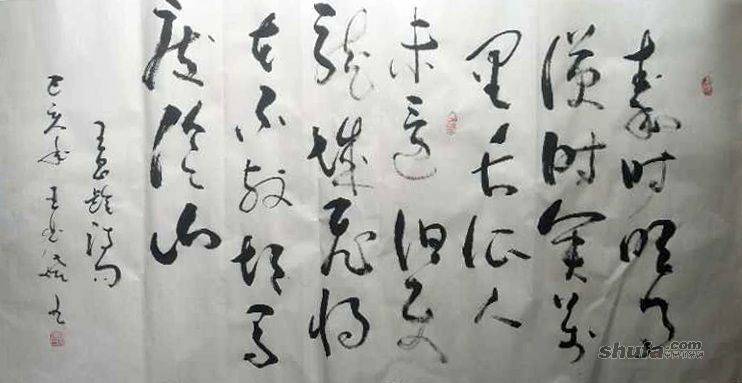 秦时明月
漢时関萬
里长征人
未還但使
龍城飛将
在不教胡马
度阴山
王昌龄诗句
己亥年王
shufa.com